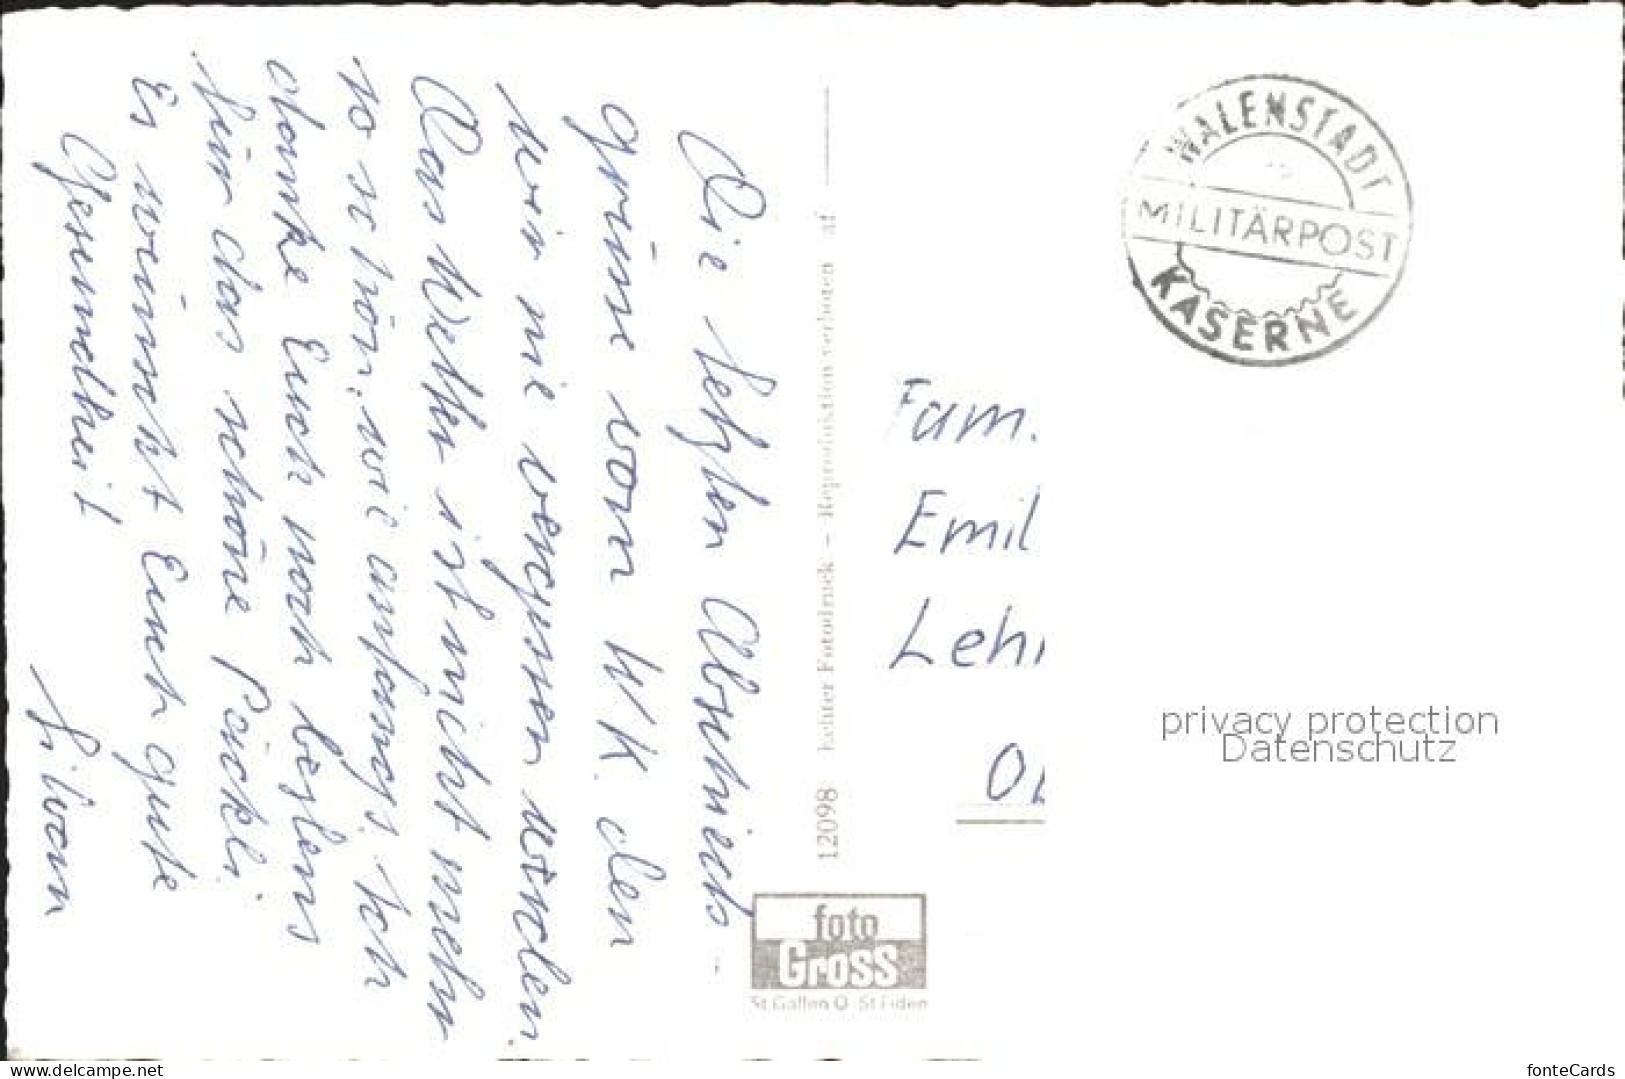 Die letzten Abschieds-
grüsse vom WK den
wir nie vergessen werden.
Das Wetter ist nicht mehr
so schön wie anfangs. Ich
danke Euch noch bestens
für das schöne Päckli.
Es wünscht Euch gute
Gesundheit
Silvan
12098 Echter Fotodruck – Reproduktion verboten af
foto
Gross
St Gallen O St Fiden
WALENSTADT
MILITÄRPOST
KASERNE
Fam.
Emil
privacy protection
Datenschutz
www.delcampe.net
fonteCards